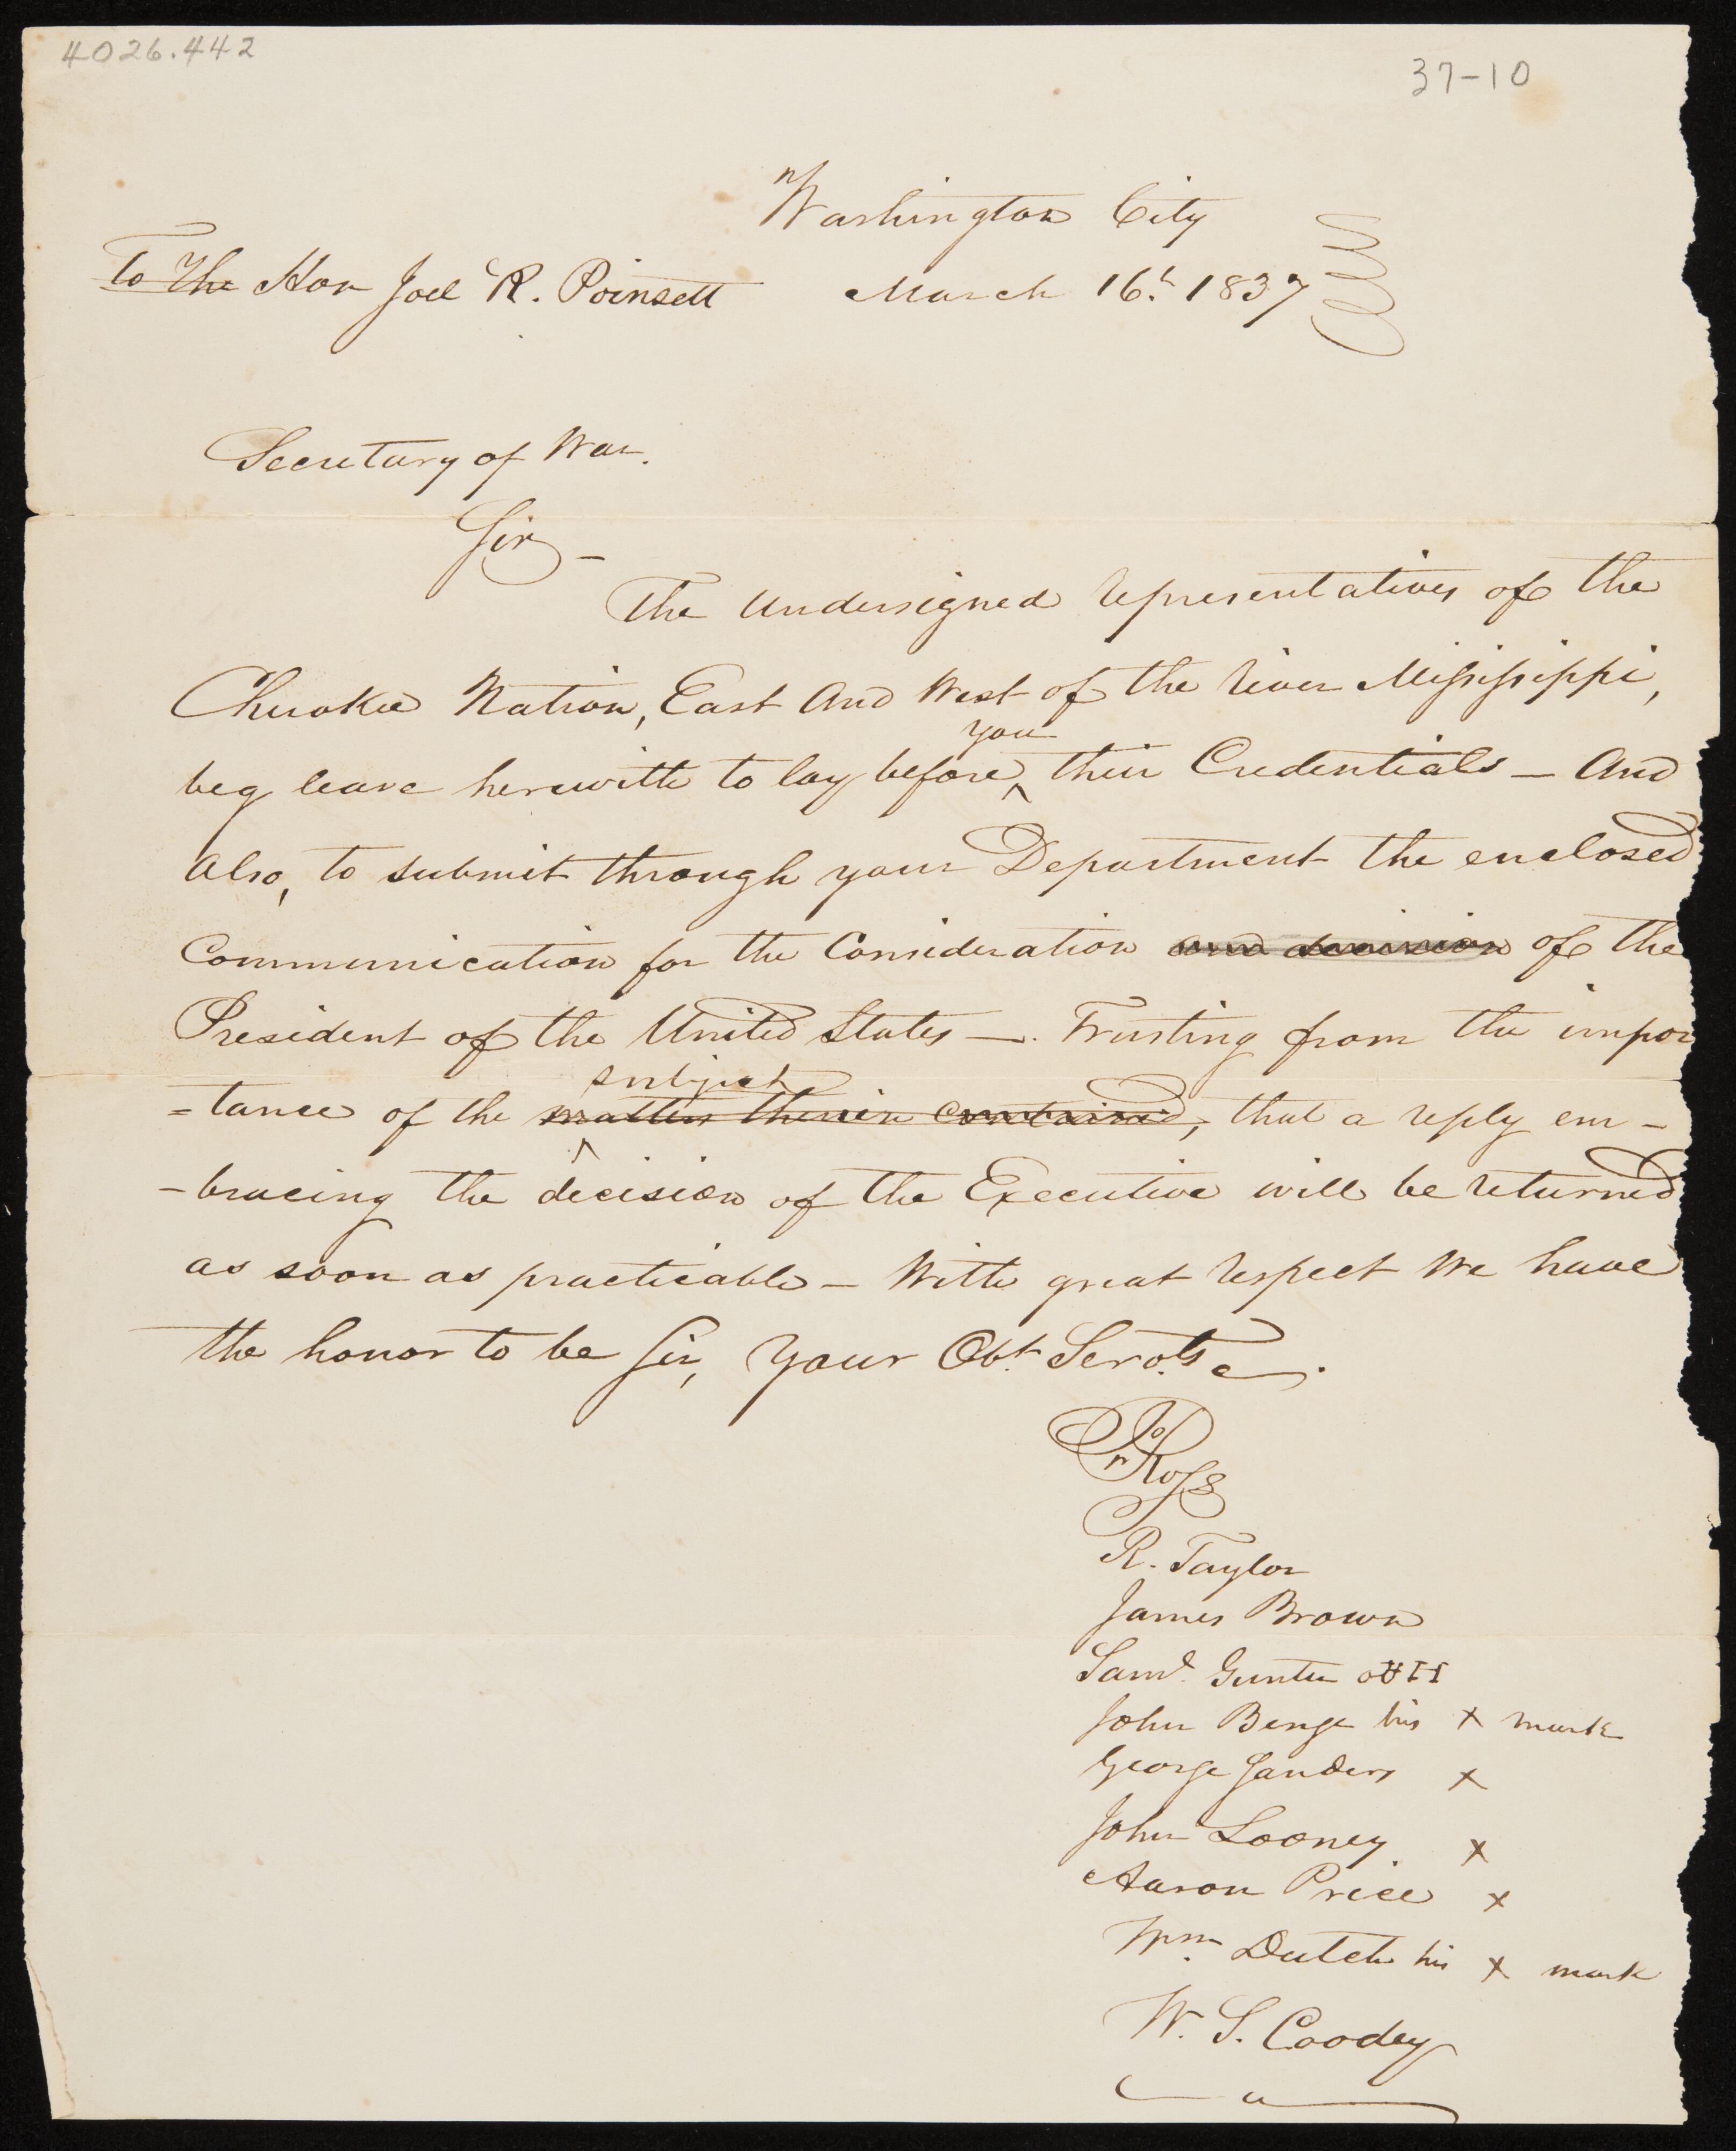 4026.442
37-10
Washington City
To The Hon Joel R. Poinsett March 16th 1837
Secretary of War.
Sir –
The Undersigned representatives of the
Cherokee Nation, East And West of the river Mississippi,
you
beg leave herewith to lay before ^ their Credentials – And
Also, to submit through your Department the enclosed
Communication for the Consideration and decision of the
President of the United States –. Trusting from the impor
subject
=tance of the matters therein contained, that a reply em-
-bracing the decision of the Executive will be returned
as soon as practicable – With great respect We have
the honor to be Sir, Your Obt. Servts.
Jno Ross
R. Taylor
James Brown
Saml. Gunter
John Benge his x mark
George Sanders x
John Looney x
Aaron Price x
Wm. Dutch his x mark
W. S. Coodey